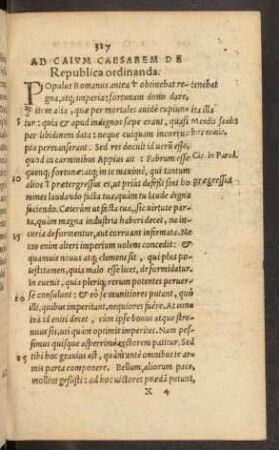 327
AD CAIVM CAESAREM DE
Republica ordinanda.
POpulus Romanus antea † obtinebat re- tenebat
gna, atq; imperia: fortunam dono dare,
& item alia, quæ per mortales auidè cupiun- ita illa
tur: quia & apud indignos sæpe erant, quasi Menda sedet
per libidinem data: neque cuiquam incorru-
pta permanserant. Sed res docuit id uerū esse,
quod in carminibus Appius ait: Fabrum esse Cic. in Parad.
10 quenq; fortunæ: atq; in te maximè, qui tantum
alios † prætergressus es, ut prius defessi sint ho- prægressus
mines laudando facta tua, quàm tu laude digna
faciendo. Cæterùm ut facta tua, sic uirtute par-
ta, quàm magna industria haberi decet, ne in-
curia deformentur, aut corruant infirmata. Ne-
mo enim alteri imperium uolens concedit: &
quamuis bonus atq; clemens sit, qui plus po-
test tamen, quia malo esse licet, deformidatur.
In euenit, quia pleriq; rerum potentes peruer-
se consulunt: & eò se munitiores putant, quò
illi, quibus imperitant, nequiores fuêre. At con-
trà id eniti decet, cùm ipse bonus atque stre-
nuus sis, uti quàm optimis imperites. Nam pes-
simus quisque asperrimè rectorem patitur. Sed
25 tibi hoc grauius est, quàm ante omnibus te ar-
mis parta componere. Bellum, aliorum pace,
mollius gessisti: ad hoc uictores prædā petunt,
X 4